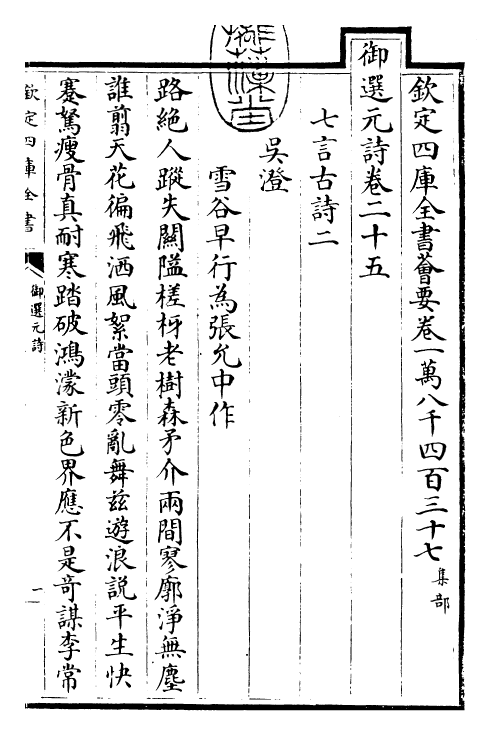 欽定四庫全書薈要卷一萬八千四百三十七 集部
御選元詩卷二十五
七言古詩二
吳澄
雪谷早行為張允中作
路絕人蹤失關隘槎枒老樹森矛介兩間寥廓淨無塵
誰翦天花徧飛洒風絮當頭零亂舞茲遊浪説平生快
蹇驁瘦骨真耐寒踏破鴻濛新色界應不是奇謀李常
欽定四庫全書
御選元詩
一